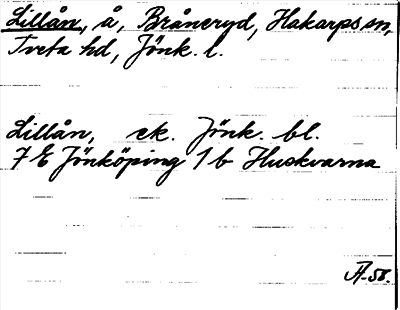 Lillån, å, Bråneryd, Hakarps sn,
Tveta hd, Jönk. l.
Lillån, ek. Jönk. bl.
7 E Jönköping 1 b Huskvarna
Å-58.